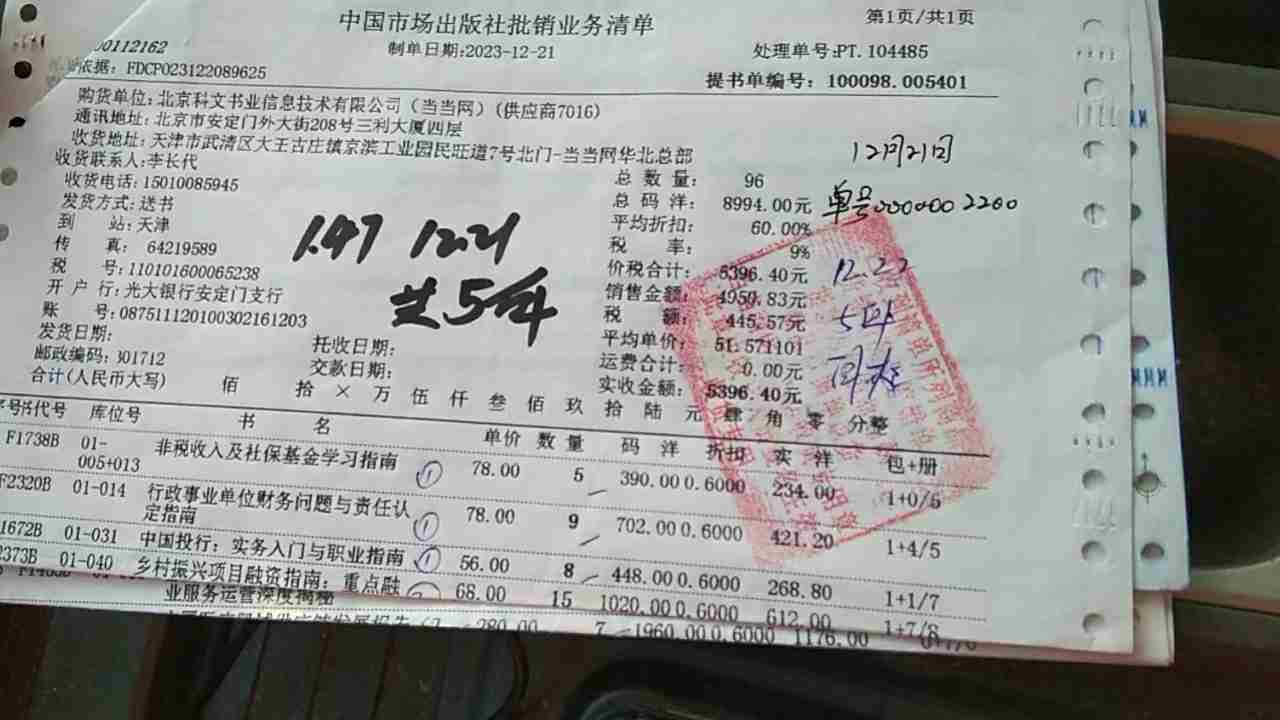 中国市场出版社批销业务清单
第1页/共1页
00112162
制单日期:2023-12-21
处理单号:PT.104485
依据: FDCP023122089625
提书单编号: 100098.005401
购货单位:北京科文书业信息技术有限公司（当当网）(供应商7016)
通讯地址:北京市安定门外大街208号三利大厦四层
收货地址:天津市武清区大王古庄镇京滨工业园民旺道7号北门-当当网华北总部
收货联系人:李长代
收货电话:15010085945
发货方式:送书
到 站:天津
传 真: 64219589
税 号:110101600065238
开 户 行:光大银行安定门支行
账 号:0875111201003021​61203
发货日期:
邮政编码:301712
托收日期:
交款日期:
总 数 量: 96
总 码 洋: 8994.00元
平均折扣: 60.00%
税 率: 9%
价税合计: 5396.40元
销售金额: 4950.83元
税 额: 445.57元
平均单价: 51.571101
运费合计: 0.00元
实收金额: 5396.40元
12月21日
单号0000002200
1.47 12.21
共5件
12.22
合计(人民币大写) 佰 拾 × 万 伍 仟 叁 佰 玖 拾 陆 元 肆 角 零 分整
序号书代号 库位号 书 名 单价 数量 码 洋 折扣 实 洋 包+册
F1738B 01-005+013 非税收入及社保基金学习指南 ① 78.00 5 390.00 0.6000 234.00 1+0/5
F2320B 01-014 行政事业单位财务问题与责任认定指南 ① 78.00 9 702.00 0.6000 421.20 1+4/5
1672B 01-031 中国投行: 实务入门与职业指南 ① 56.00 8 448.00 0.6000 268.80 1+1/7
2373B 01-040 乡村振兴项目融资指南: 重点融 68.00 15 1020.00 0.6000 612.00 1+7/8
业服务运营深度揭秘
280.00 7 1960.00 0.6000 1176.00